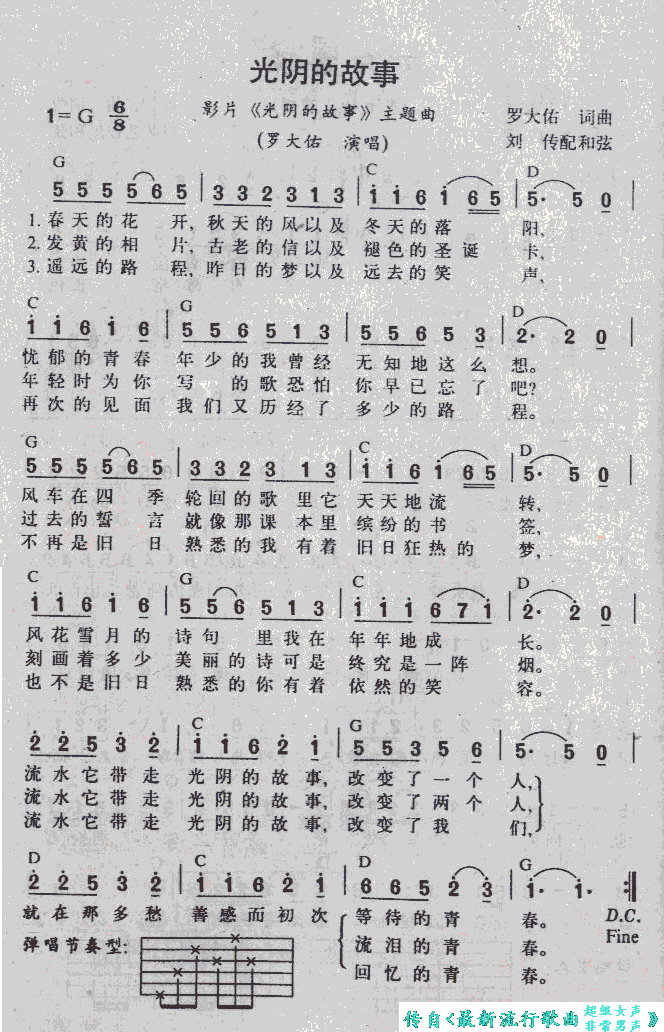 光阴的故事
1=G 6/8
影片《光阴的故事》主题曲
(罗大佑 演唱)
罗大佑 词曲
刘 传配和弦
G C D
5 5 5 5 6 5 | 3 3 2 3 1 3 | i i 6 i 6 5 | 5· 5 0
1. 春天的花 开, 秋天的风以及 冬天的落 阳,
2. 发黄的相 片, 古老的信以及 褪色的圣诞 卡,
3. 遥远的路 程, 昨日的梦以及 远去的笑 声,
C G D
i i 6 i 6 | 5 5 6 5 1 3 | 5 5 6 5 3 | 2· 2 0
忧郁的青春 年少的我曾经 无知地这么 想。
年轻时为你 写 的歌恐怕 你早已忘了 吧?
再次的见面 我们又历经了 多少的路 程。
G C D
5 5 5 5 6 5 | 3 3 2 3 1 3 | i i 6 i 6 5 | 5· 5 0
风车在四 季 轮回的歌 里它 天天地流 转,
过去的誓 言 就像那课 本里 缤纷的书 签,
不再是旧 日 熟悉的我 有着 旧日狂热的 梦,
C G C D
i i 6 i 6 | 5 5 6 5 1 3 | i i i 6 7 i | 2· 2 0
风花雪月的 诗句 里我在 年年地成 长。
刻画着多少 美丽的诗可是 终究是一阵 烟。
也不是旧日 熟悉的你有着 依然的笑 容。
C G
2 2 5 3 2 | i i 6 2 i | 5 5 3 5 6 | 5· 5 0
流水它带走 光阴的故 事, 改变了一个 人,
流水它带走 光阴的故 事, 改变了两个 人,
流水它带走 光阴的故 事, 改变了我 们,
D C D G
2 2 5 3 2 | i i 6 2 i | 6 6 5 2 3 | i· i· :||
就在那多愁 善感而初次 等待的青 春。 D.C.
弹唱节奏型: 流泪的青 春。 Fine
回忆的青 春。
传自<最新流行歌曲 超级女声 非常男声 》